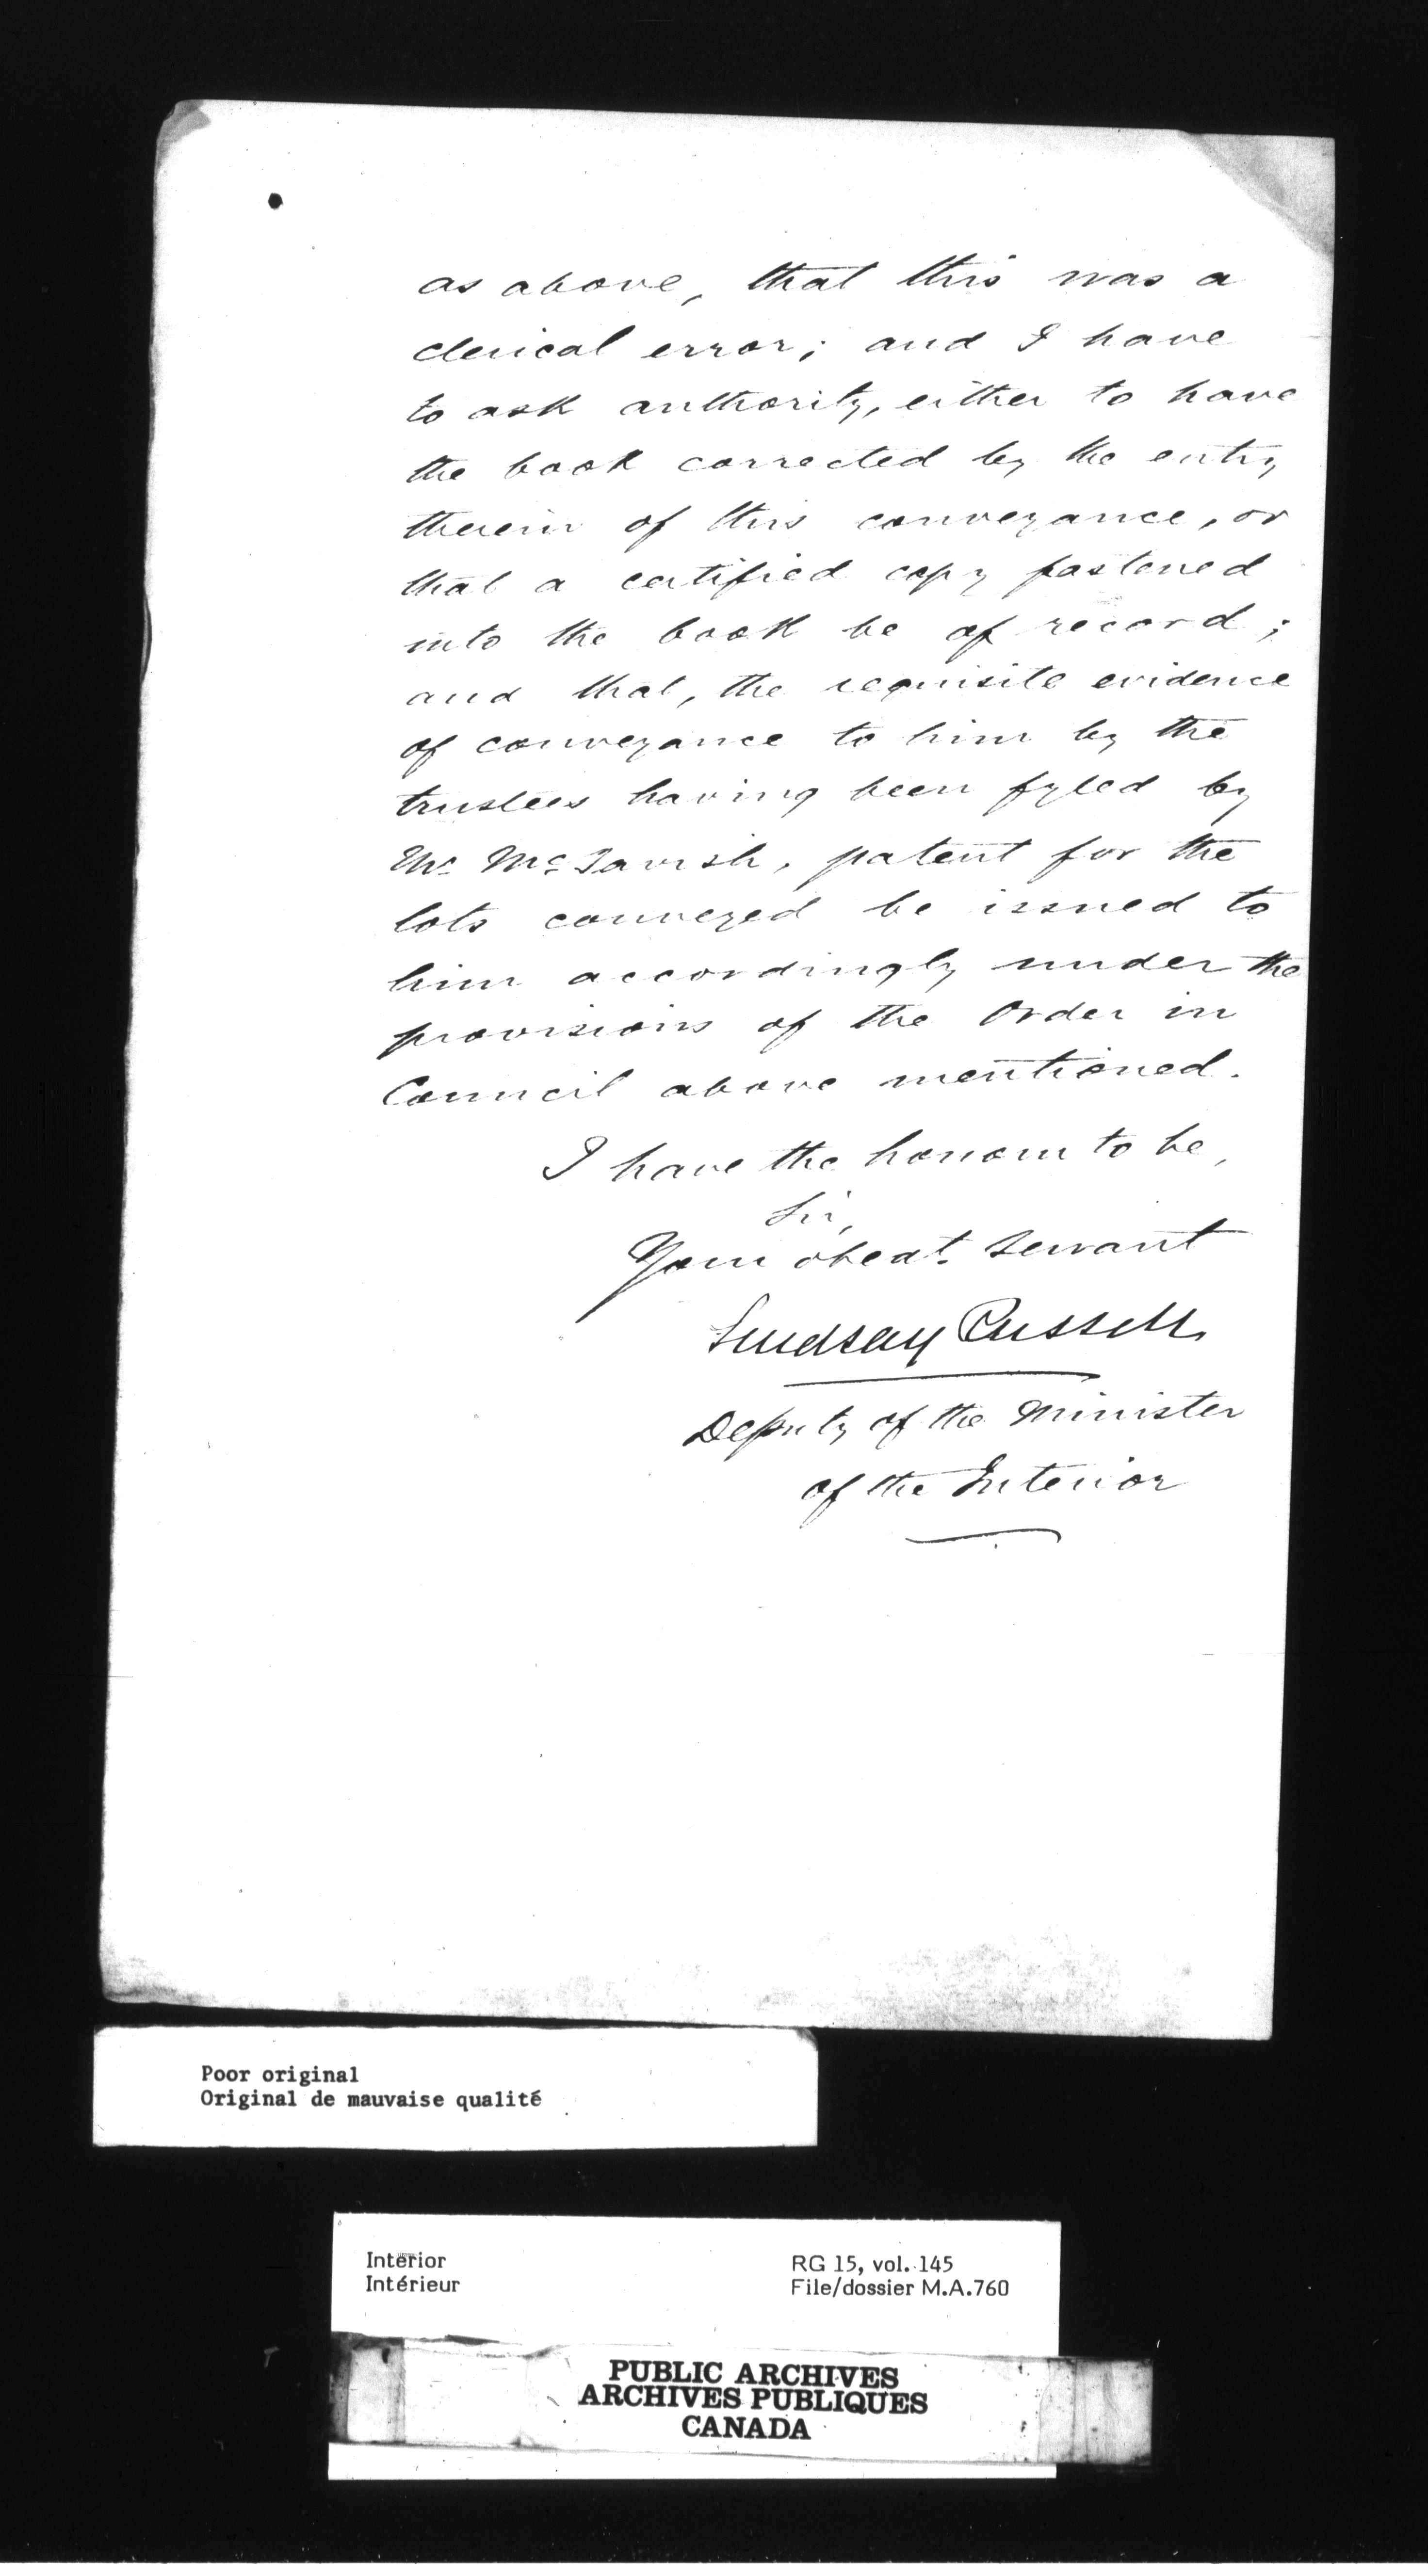 as above, that this was a
clerical error; and I have
to ask authority, either to have
the book corrected by the entry
therein of this conveyance, or
that a certified copy fastened
into the book be of record;
and that, the requisite evidence
of conveyance to him by the
trustees having been fyled by
Mr McTavish, patent for the
lots conveyed be issued to
him accordingly under the
provisions of the Order in
Council above mentioned.
I have the honour to be,
Sir,
Your obedt. servant
Lindsay Russell
Deputy of the Minister
of the Interior
Poor original
Original de mauvaise qualité
Interior
Intérieur
RG 15, vol. 145
File/dossier M.A.760
PUBLIC ARCHIVES
ARCHIVES PUBLIQUES
CANADA